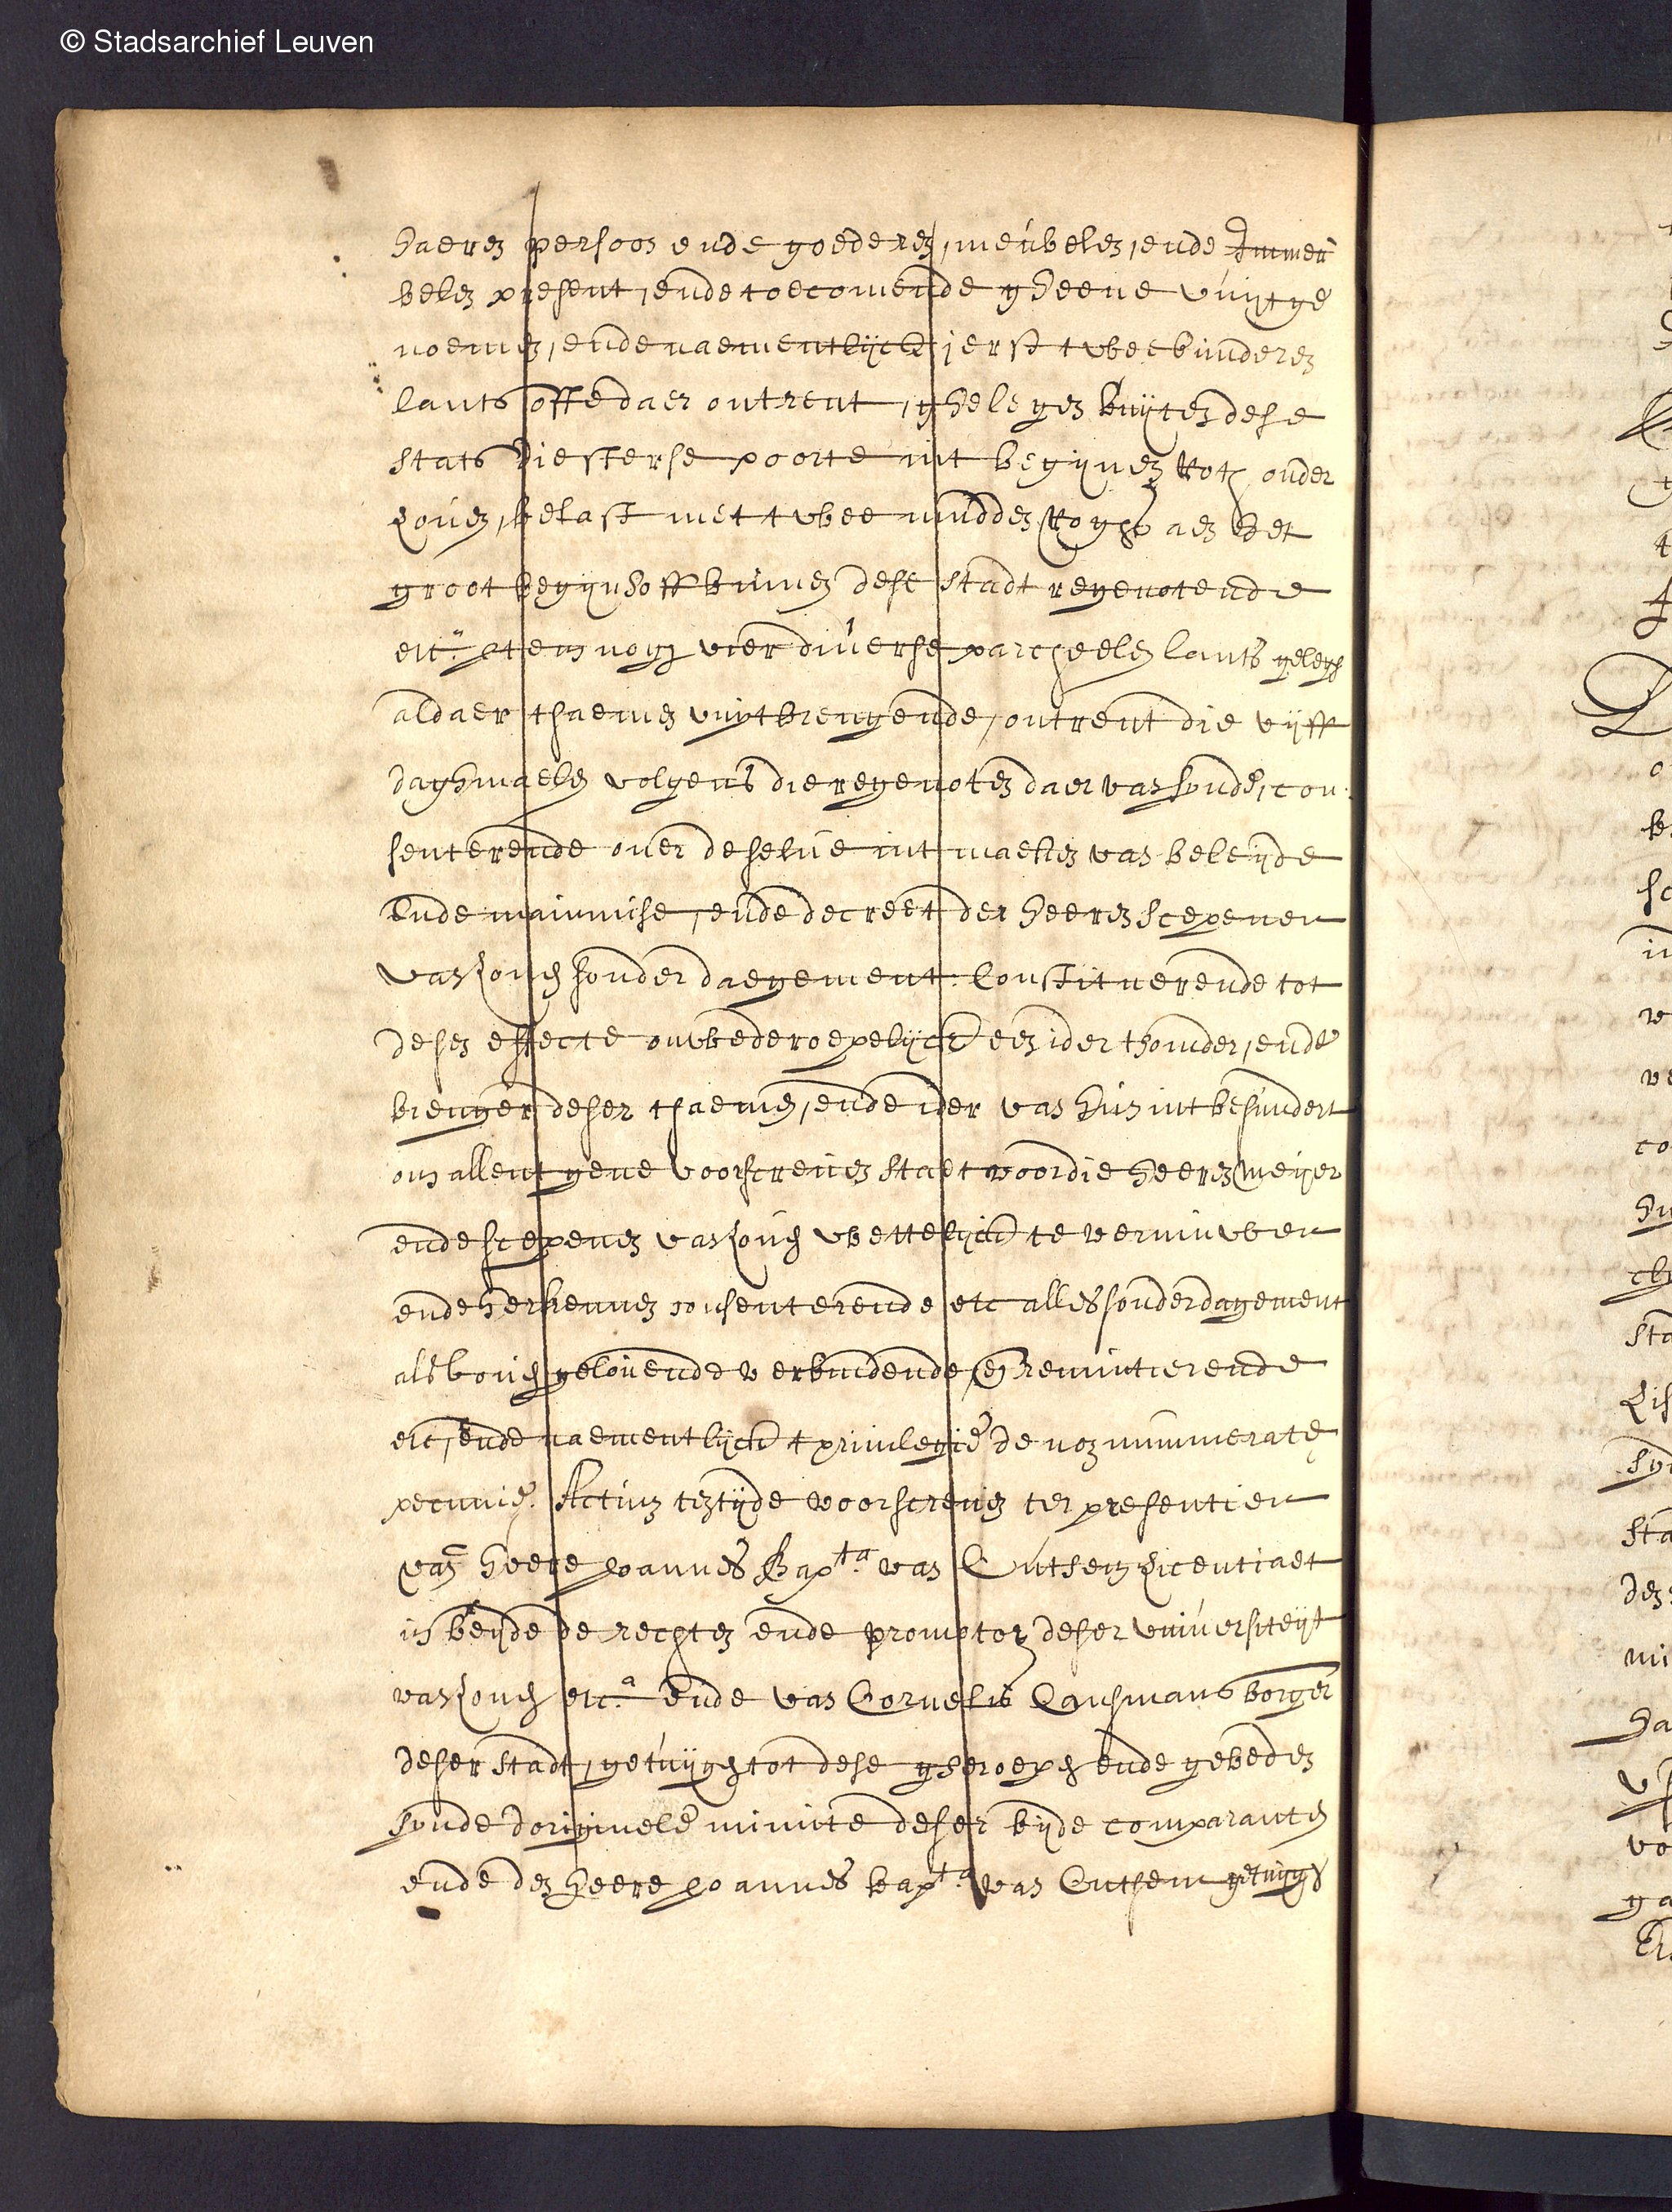 © Stadsarchief Leuven
haeren persoon ende goederen, meubelen, ende Immeu
belen present, ende toecomende gheene uuijtge
noemen, ende naementlijck jerst twee bunderen
lants offte daer ontrent, gheleg en buijten dese
stats Diesterse poorte int begijnen ender
Loven, belast met twee mudden Rogh aen het
groot begijnhoff binnen dese stadt regenotende
etc.a Item nogh vier diverse parcheelen lants geleg
aldaer tsaemen uuijtbrengende, ontrent die vijff
daghmaelen volgens die regenoten daer van synde, con
senterende over deselve int maeken van beleijde
Ende mainmise, ende decreet der heeren scepenen
van Loven sonder daegement. Constituerende tot
desen effecte onwederoepelijck een ider thonder, ende
brenger deser tsaemen, ende ider van hun int besundert
om allent gene voorscreven staet voor die heeren meijer
ende scepenen van Loven wettelijck te vernuwen
ende herkennen consenterende etc alles sonder dagement
als boven gelovende verbindende, en renuntierende
etc, ende naementlijck t privilegie de non nummerate
pecunie. Actum ten tijde voorscreven ter presentien
van heere Joannes Bap.ta van Cutsem Licentiaet
in beijde de rechten ende promotor deser universiteijt
van Loven etc.a ende van Cornelis borger
deser stadt, getuijgen tot dese gheroepen ende gebeden
synde dorigineele minute deser bijde comparanten
ende den heere Joannes bap.ta van Cutsem getuijgh